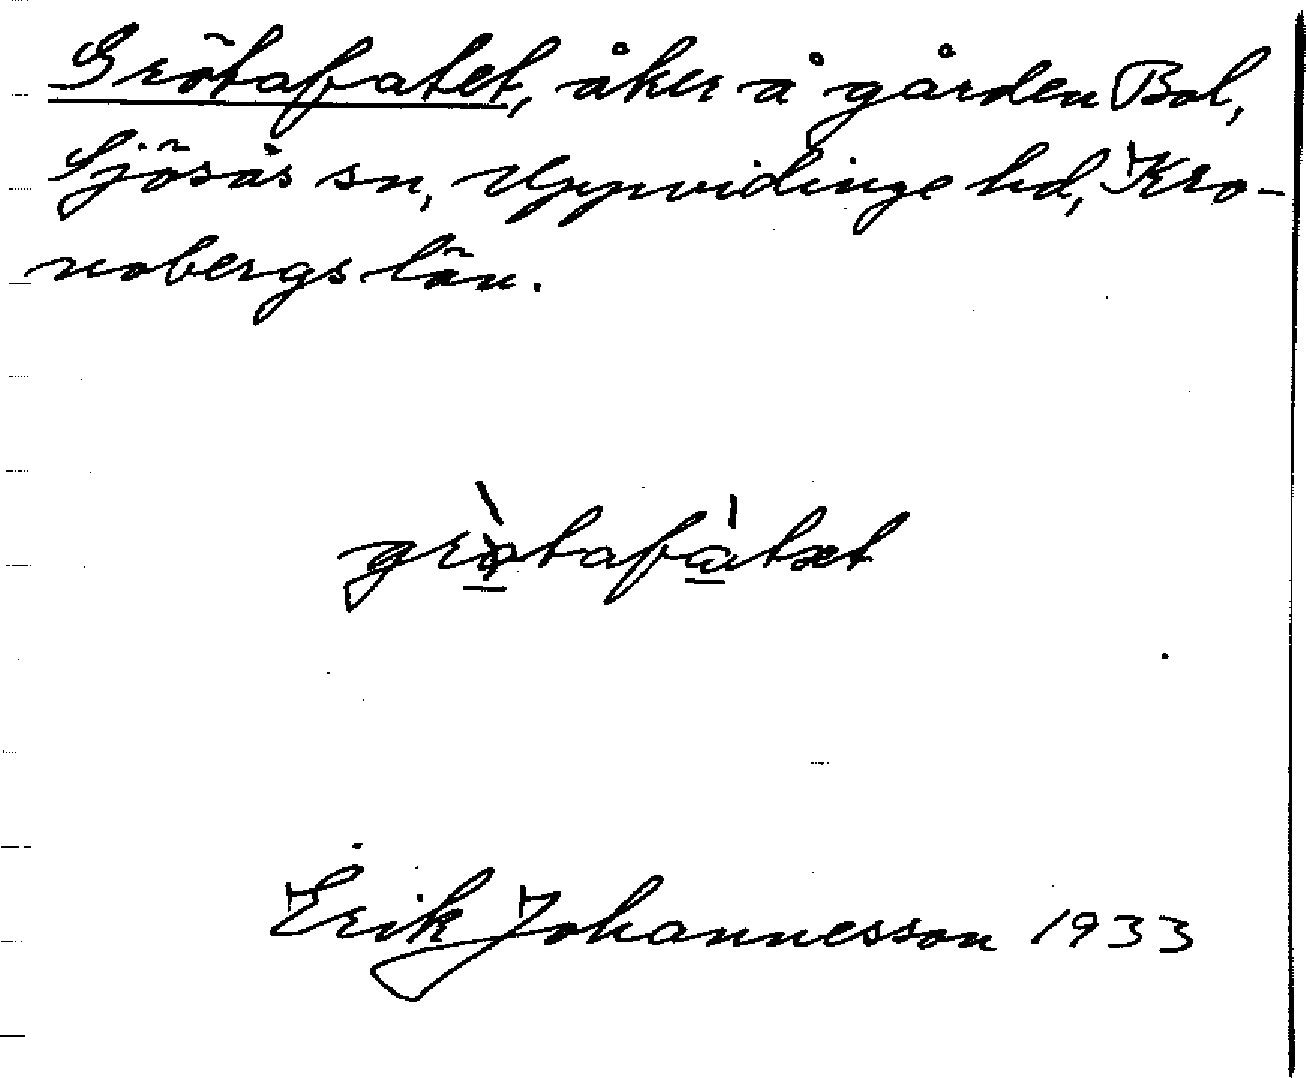 Grötafatet, åker å gården Bol,
Sjösås sn, Uppvidinge hd, Kro-
nobergs län.
grø̀tafátət
Erik Johannesson 1933